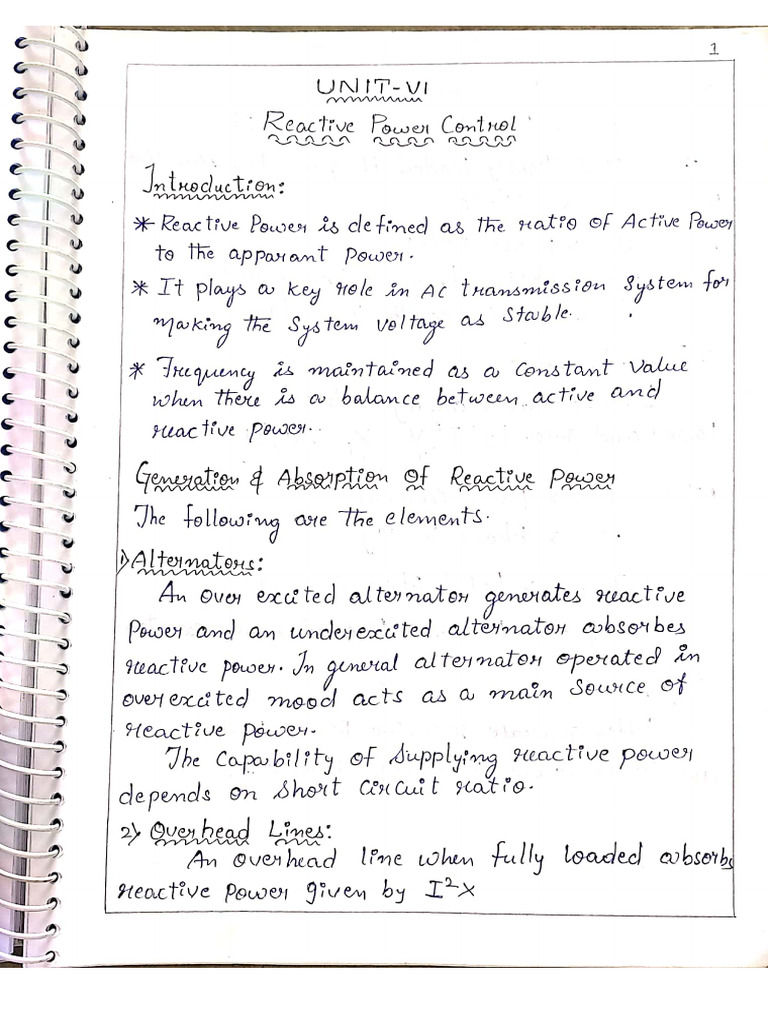 1
UNIT-VI
Reactive Power Control
Introduction:
* Reactive Power is defined as the ratio of Active Power
to the apparant power.
* It plays a key role in AC transmission system for
making the system voltage as stable.
* Frequency is maintained as a constant value
when there is a balance between active and
reactive power.
Generation & Absorption Of Reactive Power
The following are the elements.
1) Alternators:
An over excited alternator generates reactive
power and an underexcited alternator absorbes
reactive power. In general alternator operated in
overexcited mood acts as a main source of
reactive power.
The capability of supplying reactive power
depends on short circuit ratio.
2) Overhead Lines:
An overhead line when fully loaded absorbs
reactive power given by I²X